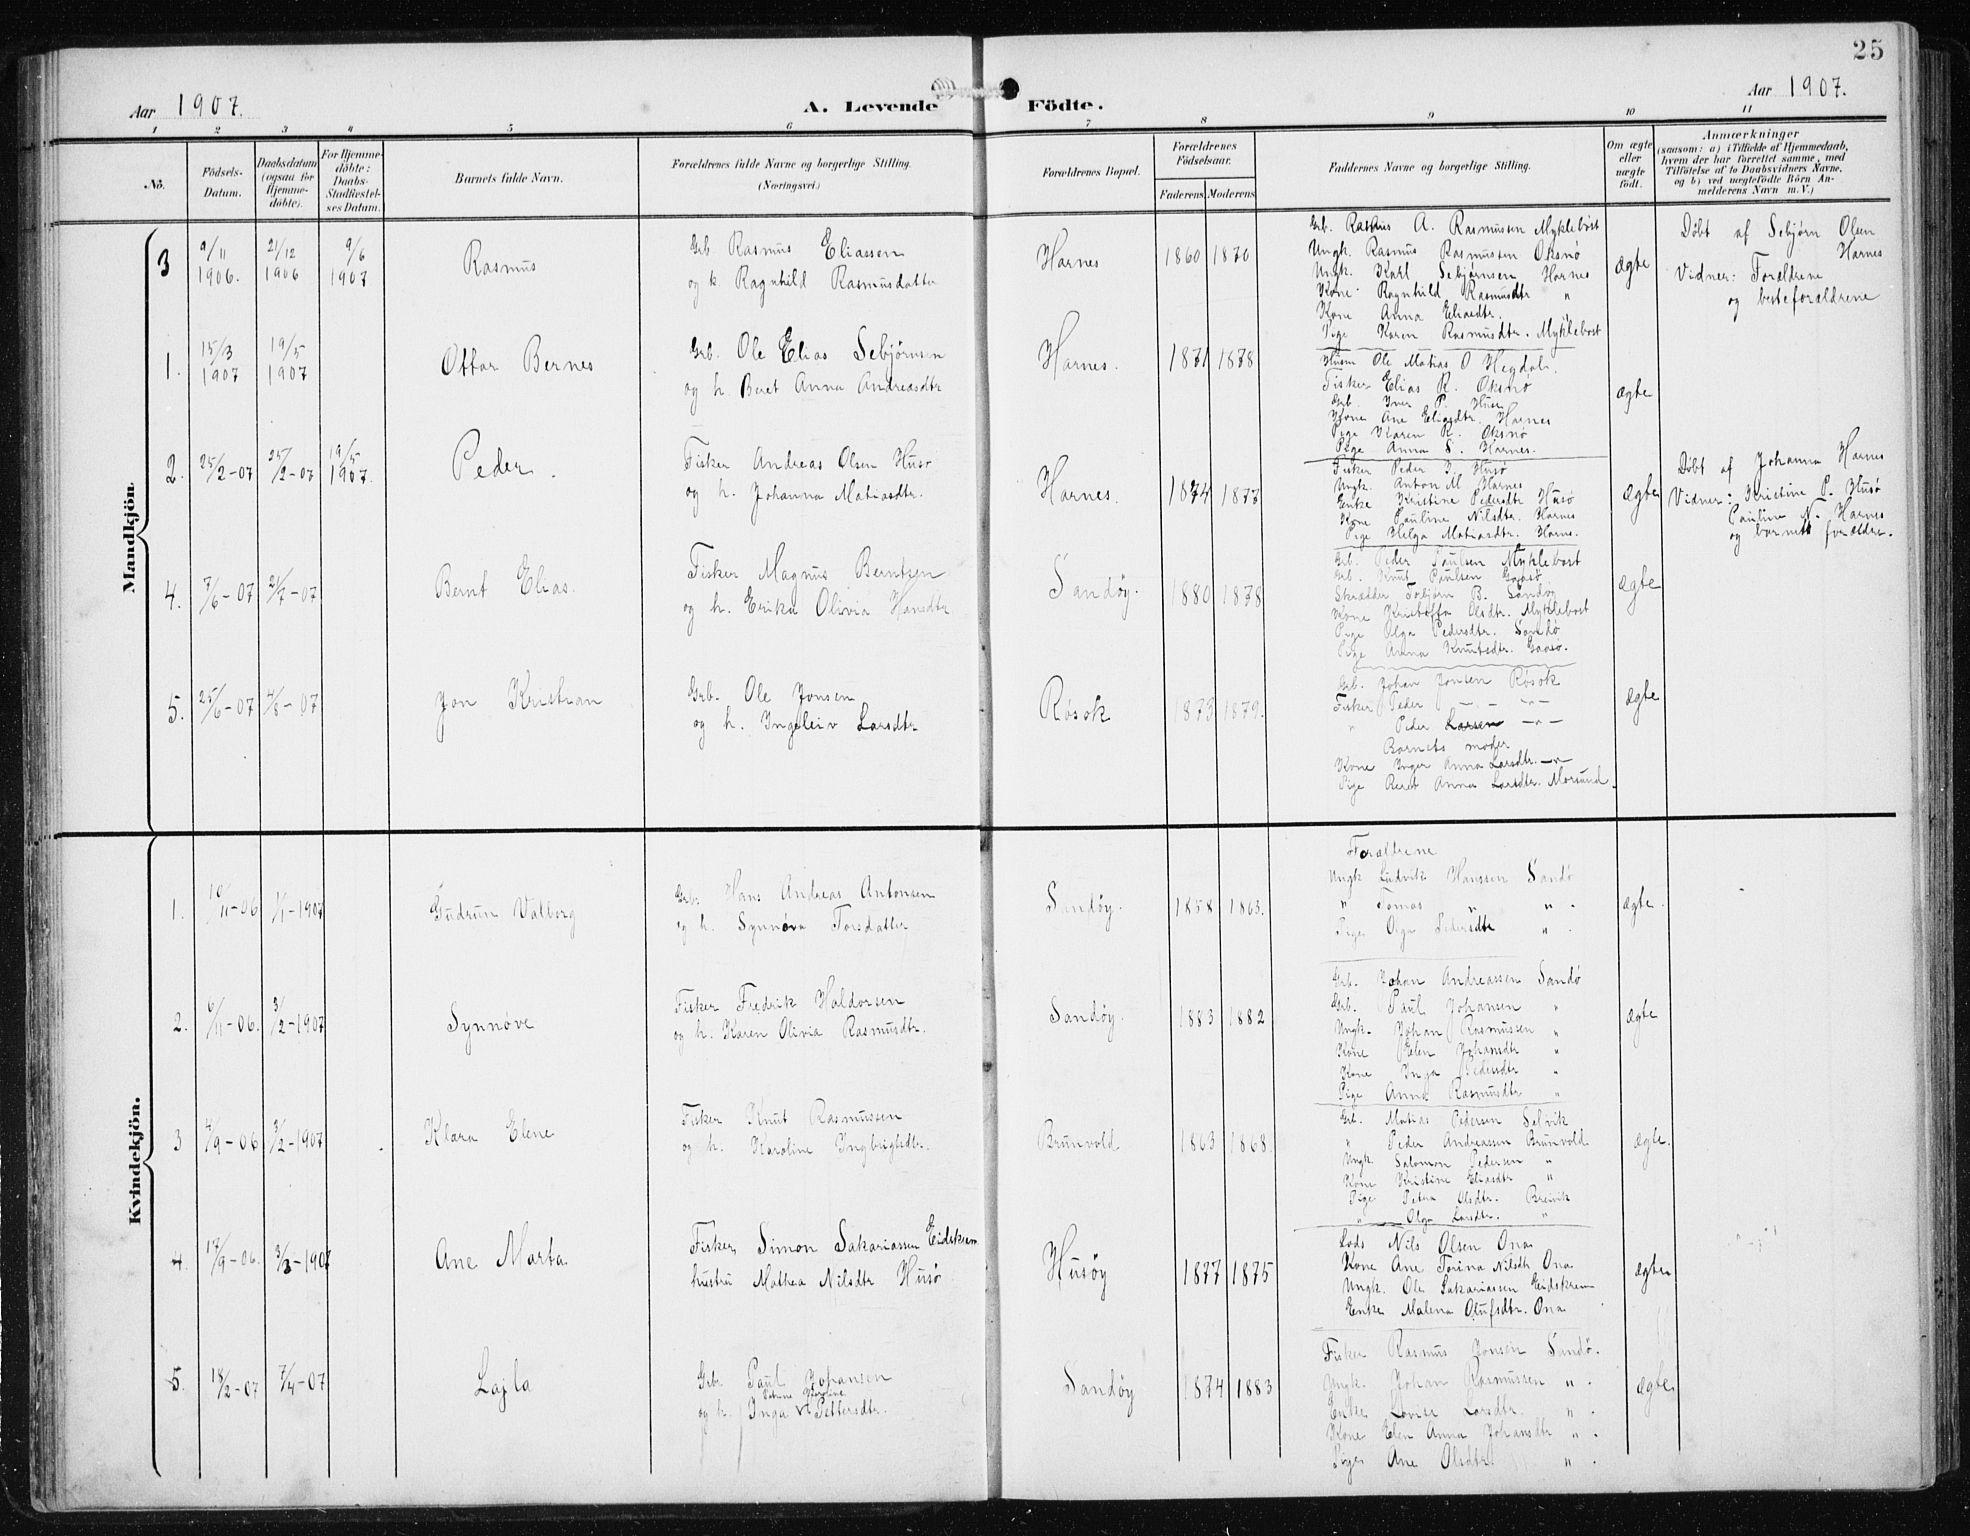 25
Aar 1907.
A. Levende Födte.
Aar 1907.
1 2 3 4 5 6 7 8 9 10 11
No.
Födsels-Datum.
Daabsdatum (ogsaa for Hjemme-döbte).
For Hjemme-döbte: Daabs-Stadfæstel-ses Datum.
Barnets fulde Navn.
Forældrenes fulde Navne og borgerlige Stilling. (Næringsvei.)
Forældrenes Bopæl.
Forældrenes Födselsaar.
Faderens. Moderens.
Faddernes Navne og borgerlige Stilling.
Om ægte eller uægte födt.
Anmærkninger
(saasom: a) i Tilfælde af Hjemmedaab, hvem der har forrettet samme, med Tilföielse af to Daabsvidners Navne, og b) ved uægtefödte Börn An-melderens Navn m. V.)
Mandkjön.
3 9/11 1906. 21/12 1906 9/6 1907 Rasmus
Grb. Rasmus Eliassen
og k. Ragnhild Rasmusdatter
Harnes 1860 1870
Grb. Rasmus A. Rasmussen Myklebost
Ungk. Rasmus Rasmussen Oksnø
Ungk. Karl Sebjørnsen Harnes
Kone Ragnhild Rasmusdtr "
Kone Anna Eliasdtr.
Pige Karen Rasmusdtr. Myklebost
ægte
Døbt af Sebjørn Olsen Harnes
Vidner: Forældrene
og besteforældrene
1. 15/3 1907 19/5 1907 Ottar Bernes
Grb. Ole Elias Sebjørnsen
og h. Beret Anna Andreasdtr
Harnes. 1871 1878
Husm Ole Matias O Hegdal.
Fisker Elias R. Oksnø
Grb. Iver P. Husø
Kone Ane Eliasdtr. Harnes
Pige Karen R. Oksnø
Pige Anna S. Harnes.
ægte
2. 25/2-07 25/2-07 19/5 1907. Peder.
Fisker Andreas Olsen Husø
og h. Johanna Matiasdtr.
Harnes. 1874 1877
Fisker Peder I. Husø
Ungk. Anton M Harnes
Enke Kristine Pedersdtr Husø
Kone Pauline Nilsdtr. Harnes
Pige Helga Matiasdtr. Harnes.
ægte
Døbt af Johanna Harnes
Vidner: Kristine P. Husø
Pauline N. Harnes
og barnets forældre.
4. 7/6-07 21/7-07 Bernt Elias.
Fisker Magnus Berntsen
og h. Erika Olivia Hansdtr
Sandøy. 1880 1878
Grb. Peder Paulsen Myklebost
Grb. Knut Paulsen Gaasø
Skrædder Torbjørn B. Sandøy
Kone Kristoffa Olsdtr. Myklebost
Pige Olga Pedersdtr. Sandø
Pige Anna Knutsdtr. Gaasø.
ægte
5. 25/6-07 4/8-07 Jon Kristian
Grb. Ole Jonsen
og h. Ingeleiv Larsdtr
Røsok 1873 1879.
Grb. Johan Jonsen Røsok
Fisker Peder -"- -"-
" Peder Larsen -"-
Barnets moder
Kone Inger Anna Larsdtr. -"-
Pige Beret Anna Larsdtr. Morsund.
ægte
Kvindekjön.
1. 10/11-06 1/1-1907 Gudrun Valborg
Grb. Hans Andreas Antonsen
og h. Synnøva Torsdatter
Sandøy. 1858 1863.
Forældrene
Ungk Ludvik Hanssen Sandø
" Tomas " ".
Pige Olga Pedersdtr ".
ægte.
2. 6/11-06. 3/2-1907 Synnøve
Fisker Fredrik Haldorsen
og h. Karen Olivia Rasmusdtr.
Sandøy. 1883 1882
Grb. Johan Andreassen Sandø
Grb. Paul Johansen "
Ungk. Johan Rasmussen "
Kone Elen Johansdtr "
Kone Inga Pedersdtr "
Pige Anna Rasmusdtr "
ægte
3 4/9-06 3/2-1907 Klara Elene
Fisker Knut Rasmussen
og h. Karoline Ingbrigtsdtr.
Brunvold 1863 1868.
Grb. Matias Pedersen Selvik
" Peder Andreassen Brunvold
Ungk. Salomon Pedersen "
Kone Kristine Eliasdtr "
Pige Petra Olsdtr. Breivik
" Olga Larsdtr. "
ægte.
4. 17/9-06. 3/3-1907 Ane Marta
Fisker Simon Sakariassen Eidskrem
hustru Mathea Nilsdtr Husø
Husøy 1877 1875
Lods Nils Olsen Ona
Kone Ane Torina Nilsdtr Ona
Ungk. Ole Sakariassen Eidskrem
Enke Malena Olufsdtr. Ona
ægte
5. 18/2-07 7/4-07 Lajla
Grb. Paul Johansen
og h. Inga Petersdtr.
Sandøy 1874 1883
Fisker Rasmus Jonsen Sandø.
Ungk. Johan Rasmussen ".
Enke Lovise Larsdtr. ".
Kone Elen Anna Johansdtr ".
Pige Ane Olsdtr ".
ægte